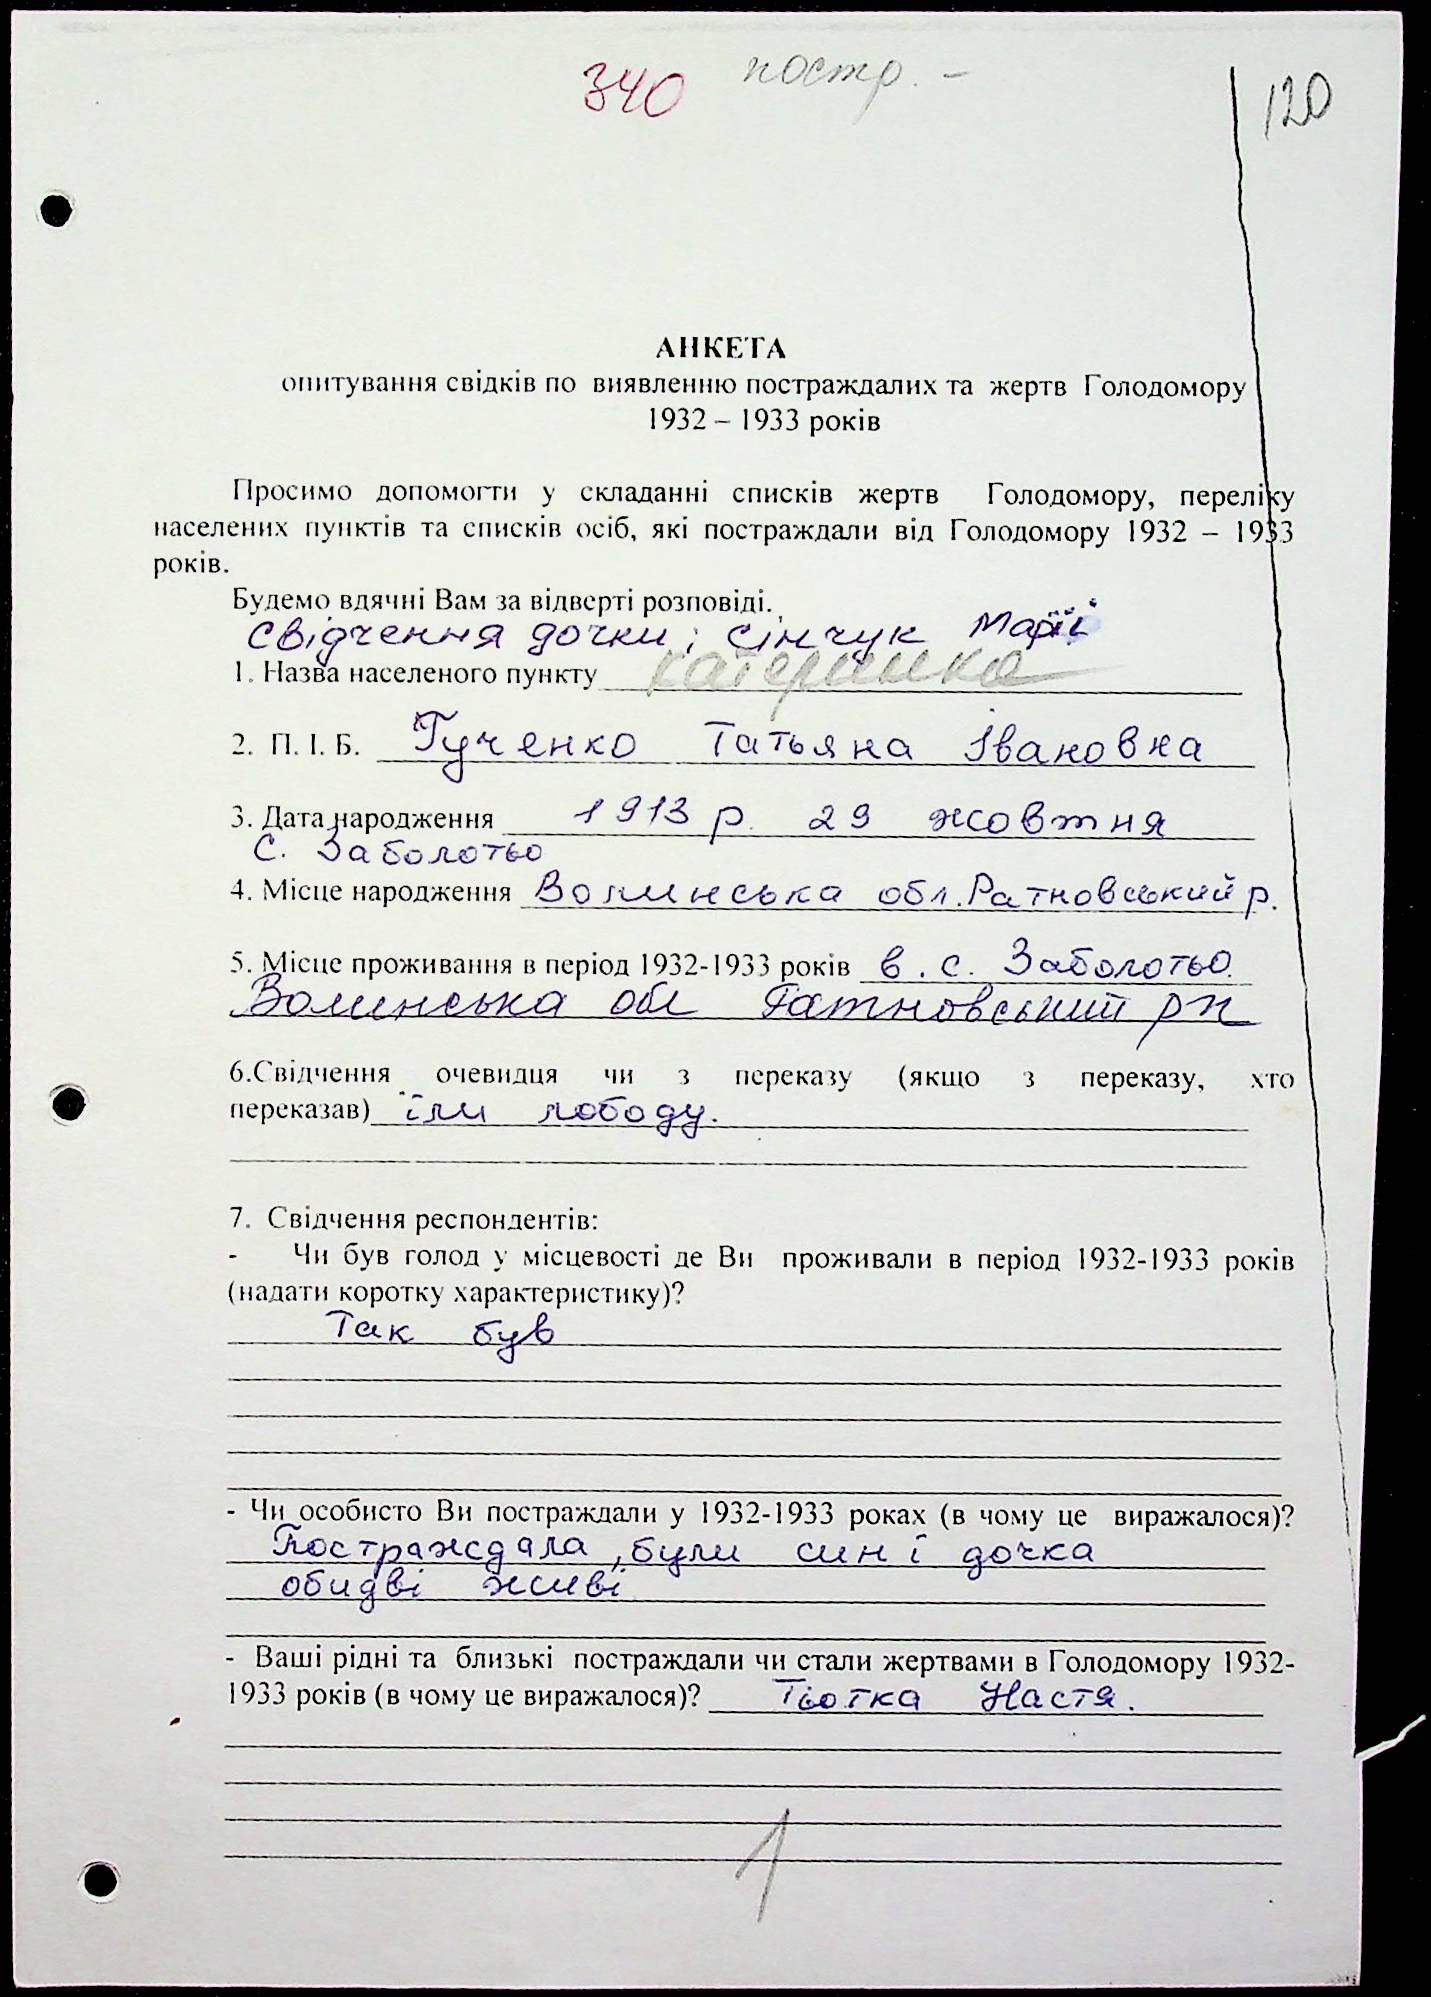 340 постр. -
120
АНКЕТА
опитування свідків по виявленню постраждалих та жертв Голодомору
1932 – 1933 років
Просимо допомогти у складанні списків жертв Голодомору, переліку
населених пунктів та списків осіб, які постраждали від Голодомору 1932 – 1933
років.
Будемо вдячні Вам за відверті розповіді.
Свідчення дочки; Сінчук Марії
1. Назва населеного пункту Катеринка
2. П. І. Б. Гученко Татьяна Івановна
3. Дата народження 1913 р. 29 жовтня
с. Заболотьо
4. Місце народження Волинська обл. Ратновський р.
5. Місце проживання в період 1932-1933 років в. с. Заболотьо.
Волинська обл Ратновський рн
6.Свідчення очевидця чи з переказу (якщо з переказу, хто
переказав) їли лободу.
7. Свідчення респондентів:
- Чи був голод у місцевості де Ви проживали в період 1932-1933 років
(надати коротку характеристику)?
Так був
- Чи особисто Ви постраждали у 1932-1933 роках (в чому це виражалося)?
Постраждала, були син і дочка
обидві живі
- Ваші рідні та близькі постраждали чи стали жертвами в Голодомору 1932-
1933 років (в чому це виражалося)? Тьотка Настя.
1